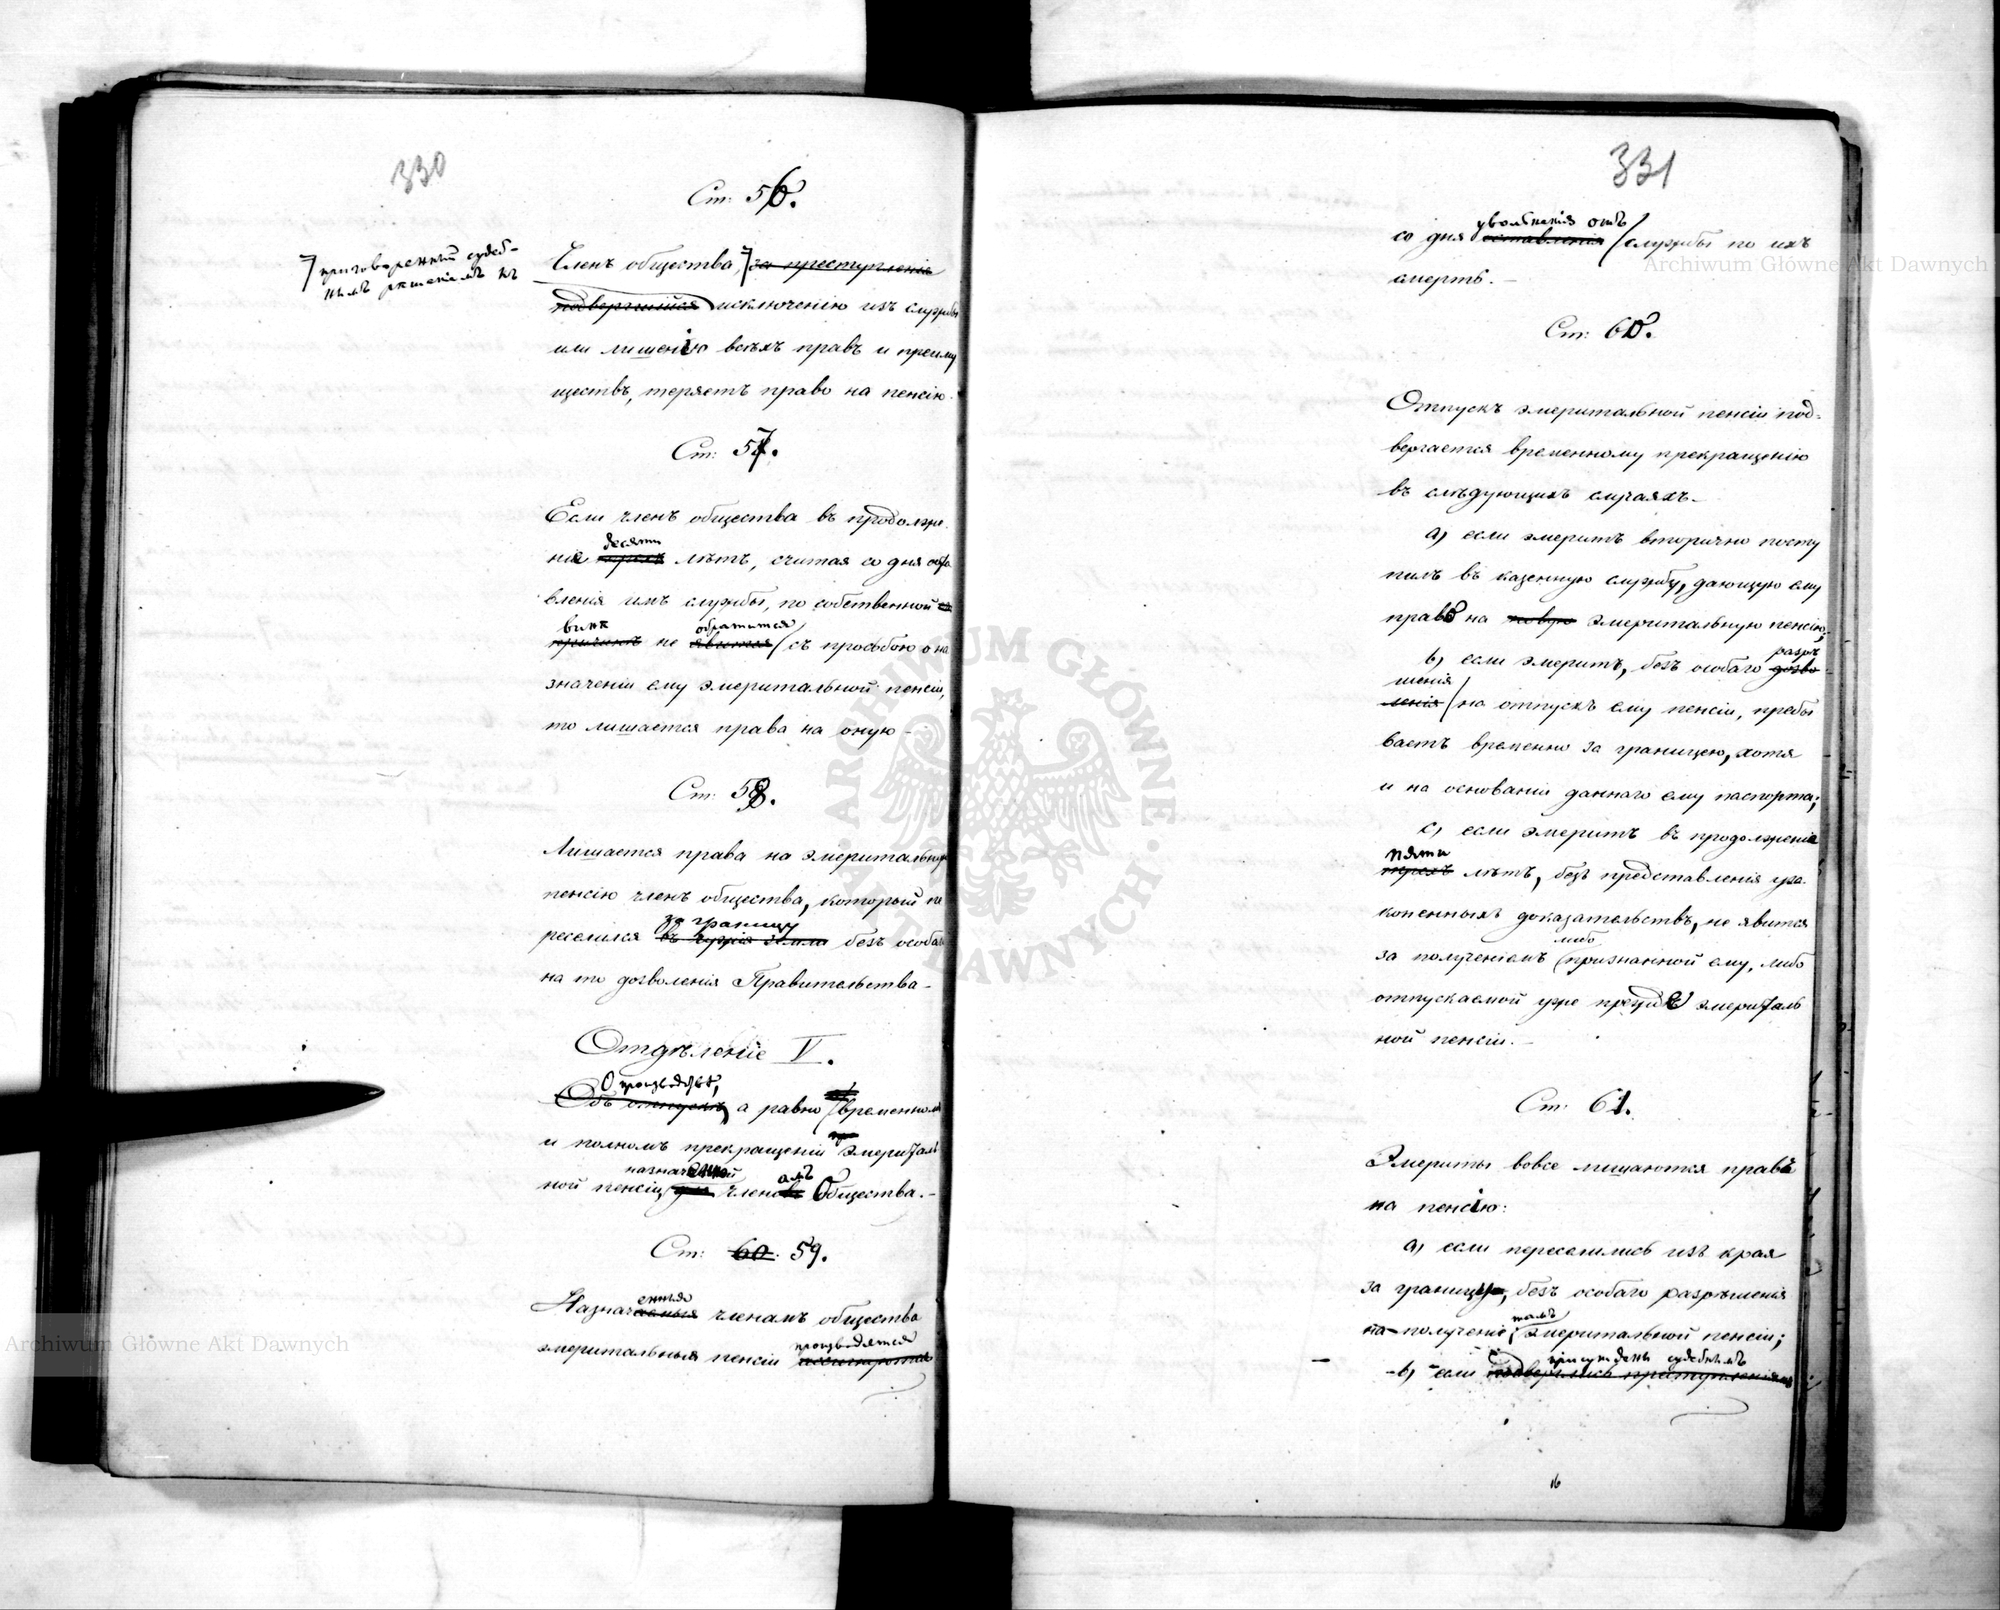 330
Ст: 56.
приговоренный судеб-
нымъ рѣшеніемъ къ
Членъ общества, за преступленія
подвергшійся исключенію изъ службы
или лишенію всѣхъ правъ и преиму
ществъ, теряетъ право на пенсію.
Ст: 57.
Если членъ общества въ продолже
десяти
ніе трехъ лѣтъ, считая со дня оста
вленія имъ службы, по собственной
винѣ обратится
причинѣ не явится съ просьбою о на
значеніи ему эмеритальной пенсіи,
то лишается права на оную -
Ст: 58.
Лишается права на эмеритальную
пенсію членъ общества, который пе
за границу
реселился въ чужія земли безъ особаго
на то дозволенія Правительства -
Отдѣленіе V.
О производствѣ,
Объ отпускѣ, а равно временномъ
и полномъ прекращеніи эмериталь
назначенной амъ
ной пенсіи, членовъ Общества. -
Ст: 60. 59.
енныя
Назначаемыя членамъ общества
производятся
эмеритальныя пенсіи ассигнуются
331
увольненія отъ
со дня оставленія службы по ихъ
смерть. -
Ст: 60.
Отпускъ эмеритальной пенсіи под-
вергается временному прекращенію
въ слѣдующихъ случаяхъ -
а) если эмеритъ вторично посту
пилъ въ казенную службу, дающую ему
право на новую эмеритальную пенсію;
разрѣ
b) если эмеритъ, безъ особаго дозво-
шенія
ленія на отпускъ ему пенсіи, пребы
ваетъ временно за границею, хотя
и на основаніи даннаго ему паспорта;
c) если эмеритъ въ продолженіе
пяти
трехъ лѣтъ, безъ представленія уза-
коненныхъ доказательствъ, не явится
либо
за полученіемъ признанной ему, либо
отпускаемой уже прежде эмериталь
ной пенсіи. -
Ст: 61.
Эмериты вовсе лишаются права
на пенсію:
а) если переселились изъ края
за границу, безъ особаго разрѣшенія
тамъ
на полученіе эмеритальной пенсіи;
присуждены судебнымъ
- b) если подверглись преступленіямъ
16
Archiwum Główne Akt Dawnych
Archiwum Główne Akt Dawnych
ARCHIWUM GŁÓWNE AKT DAWNYCH